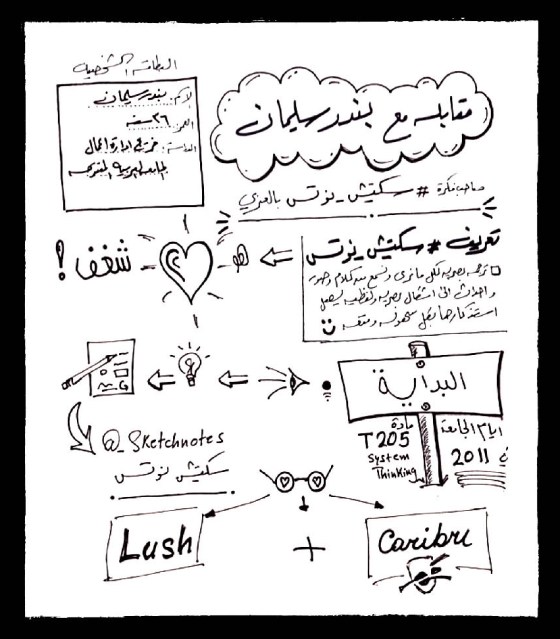 البطاقة الشخصية
الاسم: بندر سليمان
العمر: ٣٦ سنة
الدراسة: خريج إدارة أعمال
الجامعة العربية المفتوحة
مقابلة مع بندر سليمان
صاحب فكرة # سكتش_نوتس بالعربي
شغف !
تعريف # سكتش_نوتس
ترجمة بصرية لكل ما نرى ونسمع من كلام وصور
وأحداث الى أشكال بصرية ولفظية ليسهل
استذكارها بكل سهولة ومتعة
البداية
أيام الجامعة
2011
مادة
T205
System
Thinking
@_Sketchnotes
سكتش نوتس
Lush
+
Caribu